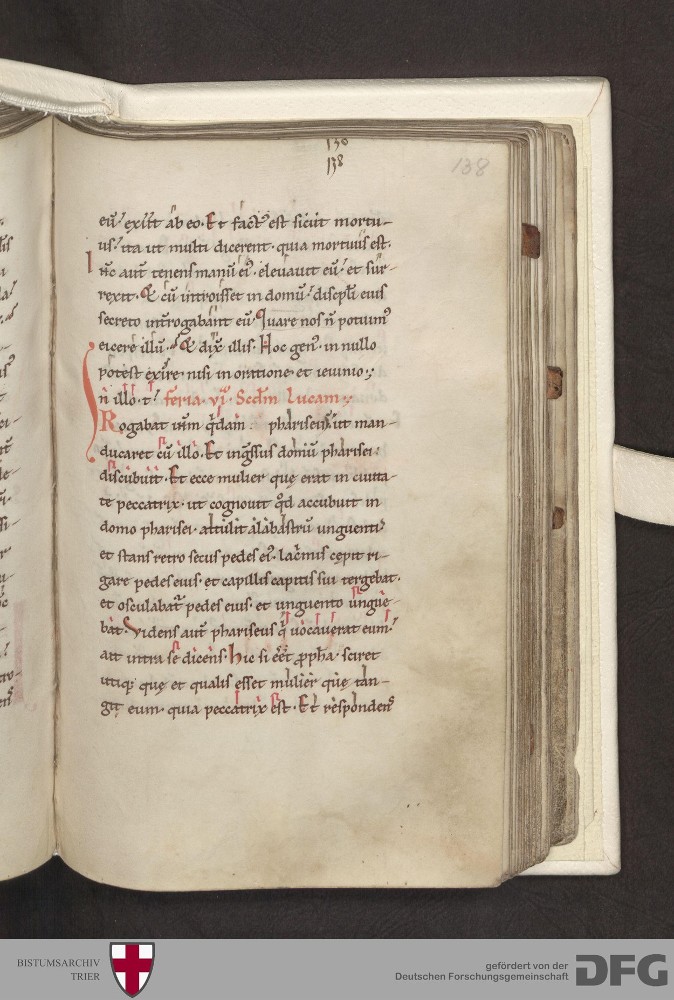 130
138
138
eu͛ exiit ab eo. Et fact᷒ est sicut mortu-
us͛ ita ut multi dicerent. quia mortuus est.
ihc aut̄ tenens manū ei᷒. eleuauit eū͛ et sur-
rexit. Et cū introisset in domū͛ discipl̄i eius
secreto int̄rogabant eū. Quare nos n̄ potuim᷒
eicere illū. Et dix̄ illis. Hoc gen᷒. in nullo
potest exire. nisi in oratione. et ieiunio.
In illo. t͛ feria. vi. Scd̄m lucam.
Rogabat ih̄m q̄dam phariseus ut man-
ducaret cū illo. Et ingressus domū pharisei
discubuit. Et ecce mulier quę erat in ciuita-
te peccatrix. ut cognouit qđ accubuit in
domo pharisei. attulit alabastrū unguenti.
et stans retro secus pedes ei᷒. lacrimis cępit ri-
gare pedes eius. et capillis capitis sui tergebat.
et osculabat᷑ pedes eius. et unguento ungue-
bat. Videns aut̄ phariseus q̄ uocauerat eum.
ait intra se dicens. hic si eēt ꝓph̄a. sciret
utiq; quę et qualis esset mulier quę tan-
git eum. quia peccatrix est. Et respondens
BISTUMSARCHIV
TRIER
gefördert von der
Deutschen Forschungsgemeinschaft
DFG